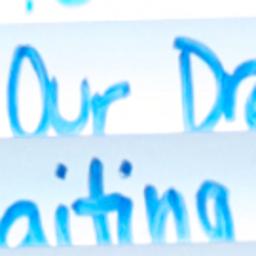 Our Dr
aiting